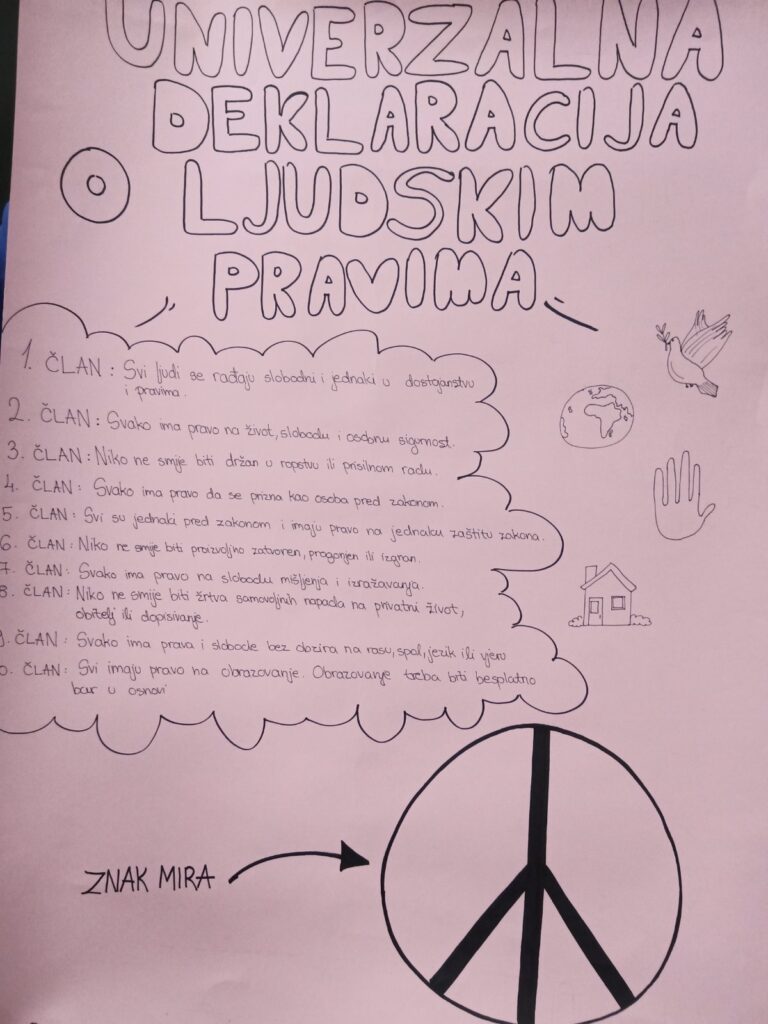 UNIVERZALNA
DEKLARACIJA
O LJUDSKIM
PRAVIMA
1. ČLAN: Svi ljudi se rađaju slobodni i jednaki u dostojanstvu
i pravima.
2. ČLAN: Svako ima pravo na život, slobodu i osobnu sigurnost.
3. ČLAN: Niko ne smije biti držan u ropstvu ili prisilnom radu.
4. ČLAN: Svako ima pravo da se prizna kao osoba pred zakonom.
5. ČLAN: Svi su jednaki pred zakonom i imaju pravo na jednaku zaštitu zakona.
6. ČLAN: Niko ne smije biti proizvoljno zatvoren, progonjen ili izgnan.
7. ČLAN: Svako ima pravo na slobodu mišljenja i izražavanja.
8. ČLAN: Niko ne smije biti žrtva samovoljnih napada na privatni život,
obitelj ili dopisivanje.
9. ČLAN: Svako ima prava i slobode bez obzira na rasu, spol, jezik ili vjeru
0. ČLAN: Svi imaju pravo na obrazovanje. Obrazovanje treba biti besplatno
bar u osnovi
ZNAK MIRA